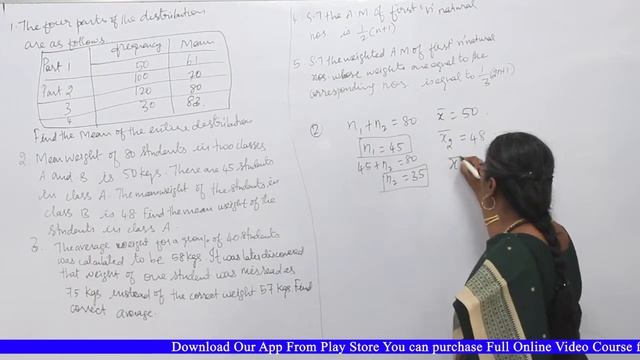 1. The four parts of the distribution
are as follows
frequency Mean
Part 1 50 61
Part 2 100 70
3 120 80
4 30 83
Find the Mean of the entire distribution
2. Mean weight of 80 students in two classes
A and B is 50 kgs. There are 45 students
in class A. The mean weight of the students in
class B is 48. Find the mean weight of the
students in class A.
3. The average weight for a group of 40 students
was calculated to be 58 kgs. It was later discovered
that weight of one student was misread as
75 kgs instead of the correct weight 57 kgs. Find
correct average.
4. S.T the A M of first 'n' natural
nos is 1/2 (n+1)
5. S.T the weighted A M of first 'n' natural
nos. whose weights are equal to the
corresponding nos is equal to 1/3 (2n+1)
② n₁ + n₂ = 80 x̄ = 50
n₁ = 45 x̄₂ = 48
45 + n₂ = 80 x̄
n₂ = 35
Download Our App From Play Store You can purchase Full Online Video Course f